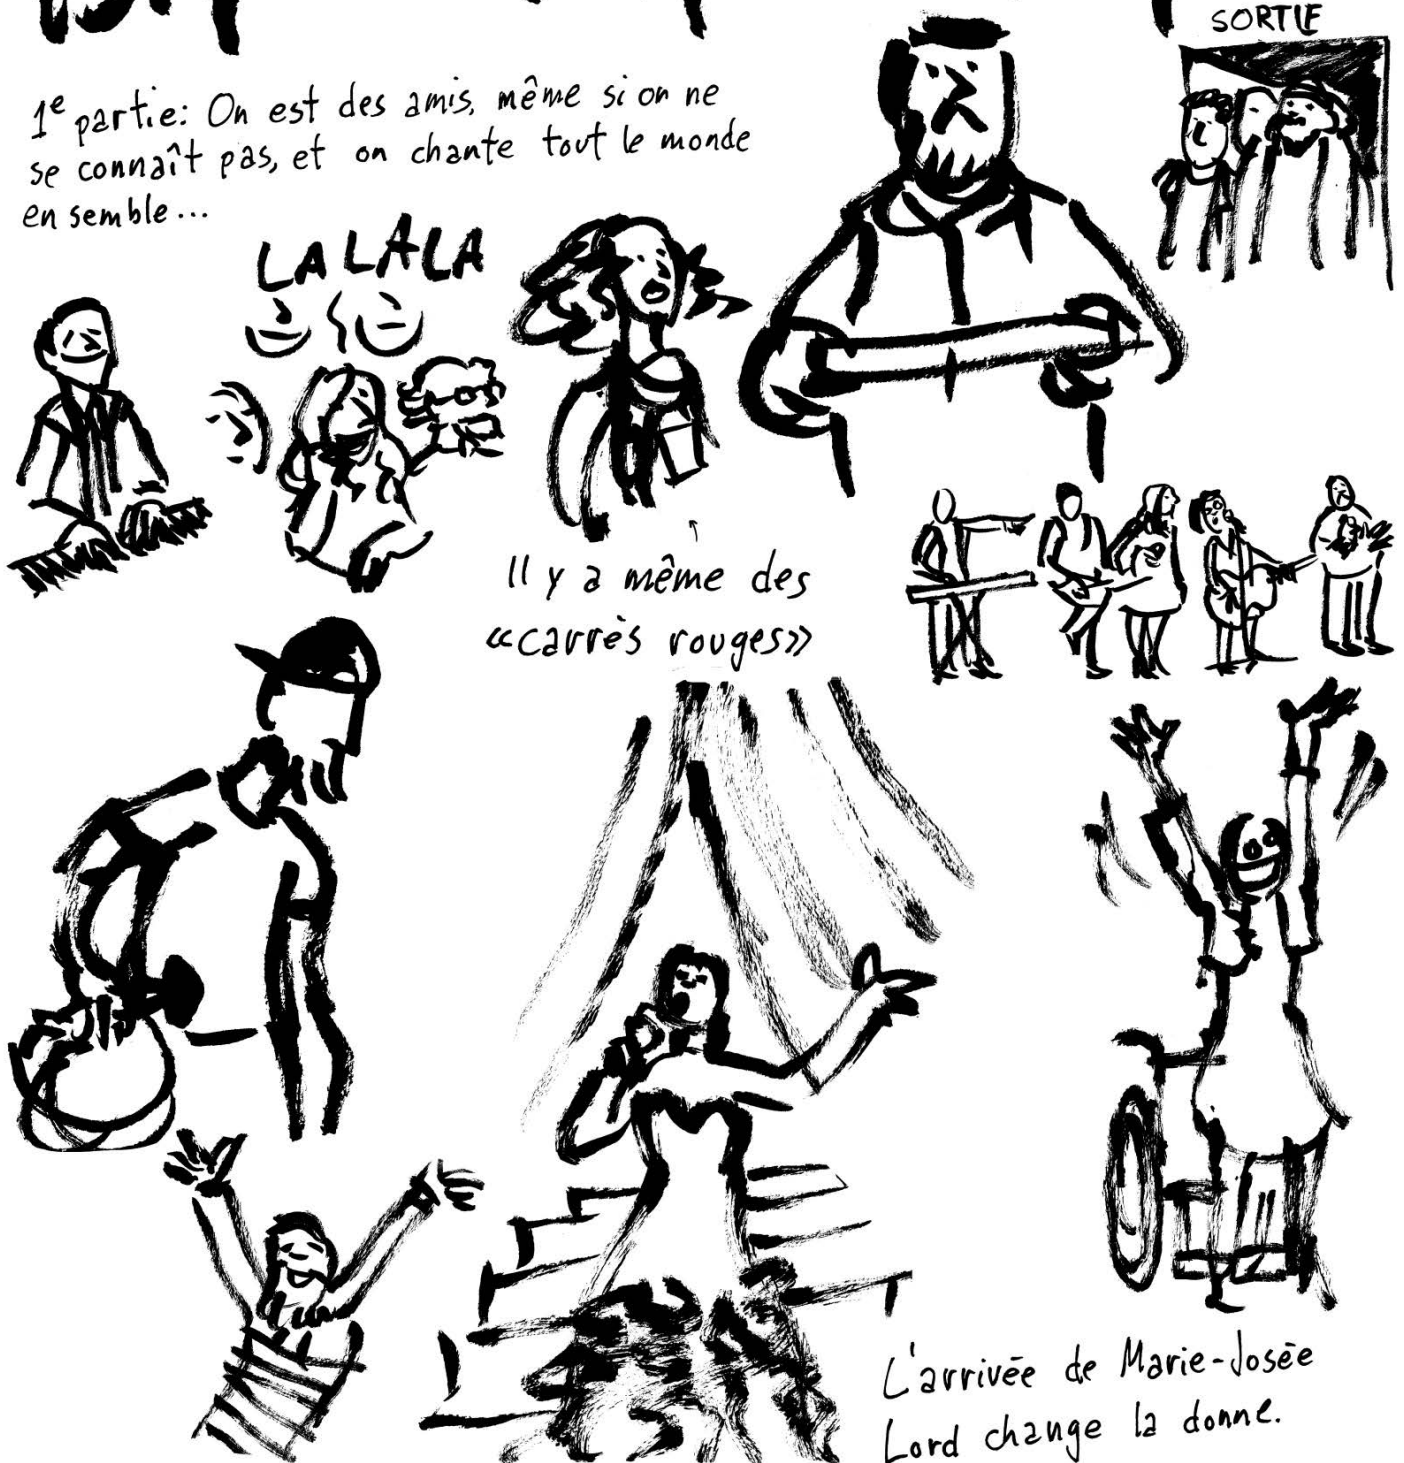 SORTIE
1e partie: On est des amis, même si on ne
se connaît pas, et on chante tout le monde
ensemble...
LA LA LA
Il y a même des
«carrés rouges»
L'arrivée de Marie-Josée
Lord change la donne.